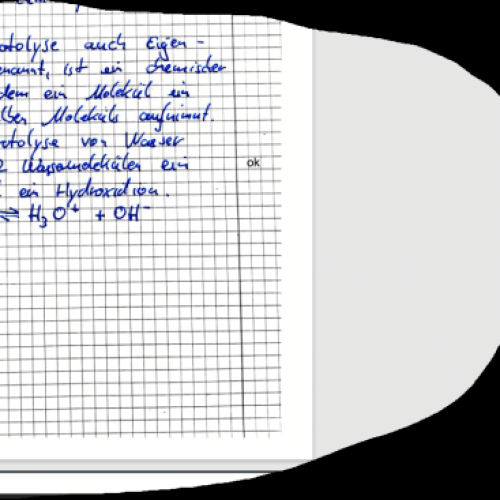 otolyse auch Eigen-
enannt, ist ein chemischer
dem ein Molekül ein
lben Moleküls aufnimmt.
rotolyse von Wasser
2 Wassermolekülen ein
ein Hydroxidion.
⇌ H₃O⁺ + OH⁻
ok